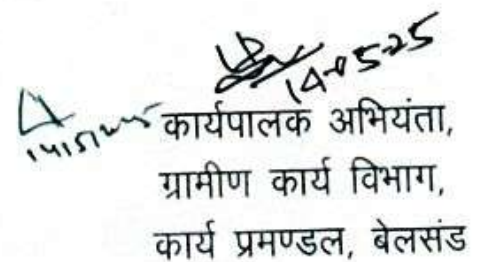 14-05-25
14/5/2025
कार्यपालक अभियंता,
ग्रामीण कार्य विभाग,
कार्य प्रमण्डल, बेलसंड